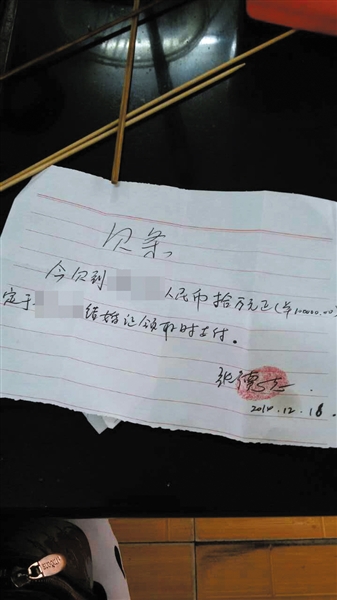 欠条
今欠到 人民币拾万元正(￥100000.00)
定于 结婚证领取时支付。
张德
2014.12.18.